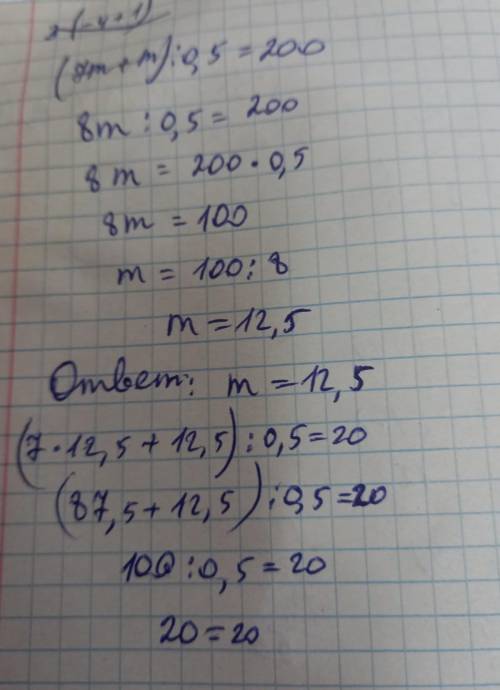 (7m + m) : 0,5 = 200
8m : 0,5 = 200
8m = 200 · 0,5
8m = 100
m = 100 : 8
m = 12,5
Ответ: m = 12,5
(7 · 12,5 + 12,5) : 0,5 = 20
(87,5 + 12,5) : 0,5 = 20
100 : 0,5 = 20
20 = 20